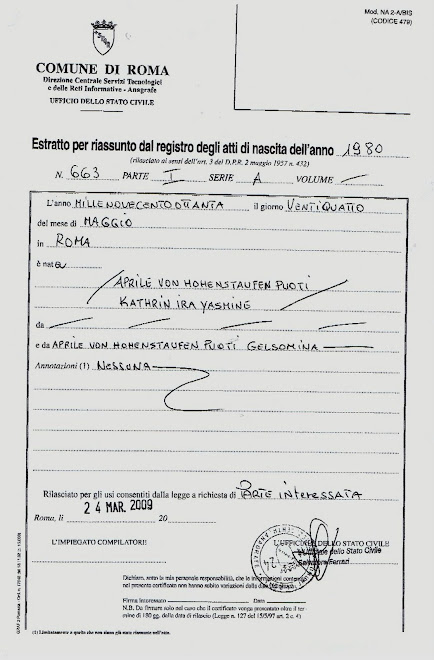 Mod. NA 2-A/BIS
(CODICE 479)
COMUNE DI ROMA
Direzione Centrale Servizi Tecnologici
e delle Reti Informative - Anagrafe
UFFICIO DELLO STATO CIVILE
Estratto per riassunto dal registro degli atti di nascita dell'anno 1980
(rilasciato ai sensi dell'art. 3 del D.P.R. 2 maggio 1957 n. 432)
N. 663 PARTE I SERIE A VOLUME
L'anno MILLENOVECENTOOTTANTA il giorno VENTIQUATTO
del mese di MAGGIO
in ROMA
è nata
APRILE VON HOHENSTAUFEN PUOTI
KATHRIN IRA YASMINE
da
e da APRILE VON HOHENSTAUFEN PUOTI GELSOMINA
Annotazioni (1) NESSUNA
Rilasciato per gli usi consentiti dalla legge a richiesta di PARTE INTERESSATA
24 MAR. 2009
Roma, lì 20
L'IMPIEGATO COMPILATORE:
L'UFFICIALE DELLO STATO CIVILE
dello Stato Civile
Dichiaro, sotto la mia personale responsabilità, che le informazioni contenute
nel presente certificato non hanno subito variazioni dalla data del
Firma Interessato Data
N.B. Da firmare solo nel caso che il certificato venga prodotto oltre il ter-
mine di 180 gg. dalla data di rilascio (Legge n. 127 del 15/5/97 art. 2 c. 4)
(1) Limitatamente a quelle che non siano già state riassunte nell'atto.